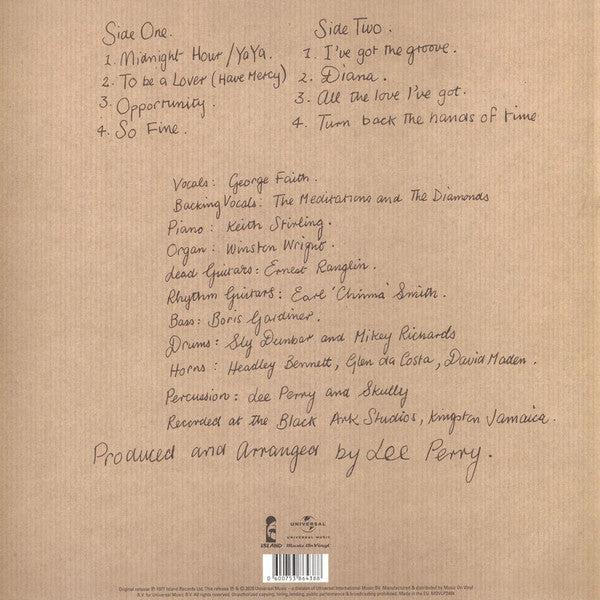 Side One.
1. Midnight Hour/YaYa.
2. To be a Lover (Have Mercy)
3. Opportunity.
4. So Fine.
Side Two.
1. I've got the groove.
2. Diana.
3. All the love I've got.
4. Turn back the hands of time
Vocals: George Faith.
Backing Vocals: The Meditations and The Diamonds
Piano: Keith Stirling.
Organ: Winston Wright.
Lead Guitars: Ernest Ranglin.
Rhythm Guitars: Earl 'Chinna' Smith.
Bass: Boris Gardiner.
Drums: Sly Dunbar and Mikey Richards
Horns: Headley Bennett, Glen da Costa, David Maden.
Percussion: Lee Perry and Skully
Recorded at the Black Ark Studios, Kingston Jamaica.
Produced and Arranged by Lee Perry.
ISLAND
UNIVERSAL
UNIVERSAL MUSIC
Music On Vinyl
0 600753 864388
Original release ℗ 1977 Island Records Ltd. This release ℗ & © 2020 Universal Music - a division of Universal International Music BV. Manufactured & distributed by Music On Vinyl
B.V. for Universal Music. Unauthorized copying, hiring, lending, public performance & broadcasting prohibited. Made in the EU.